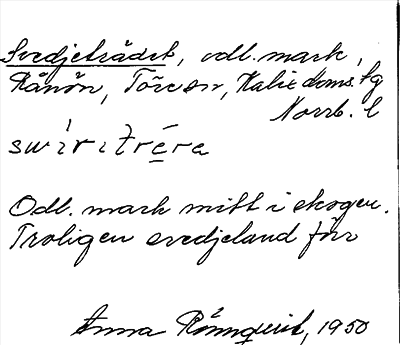 Svedjeträdet, odl. mark,
Rånön, Töre sn, Kalix doms. tg
Norrb. l
swìritréra
Odl. mark mitt i skogen.
Troligen svedjeland förr
Anna Rönnqvist, 1950